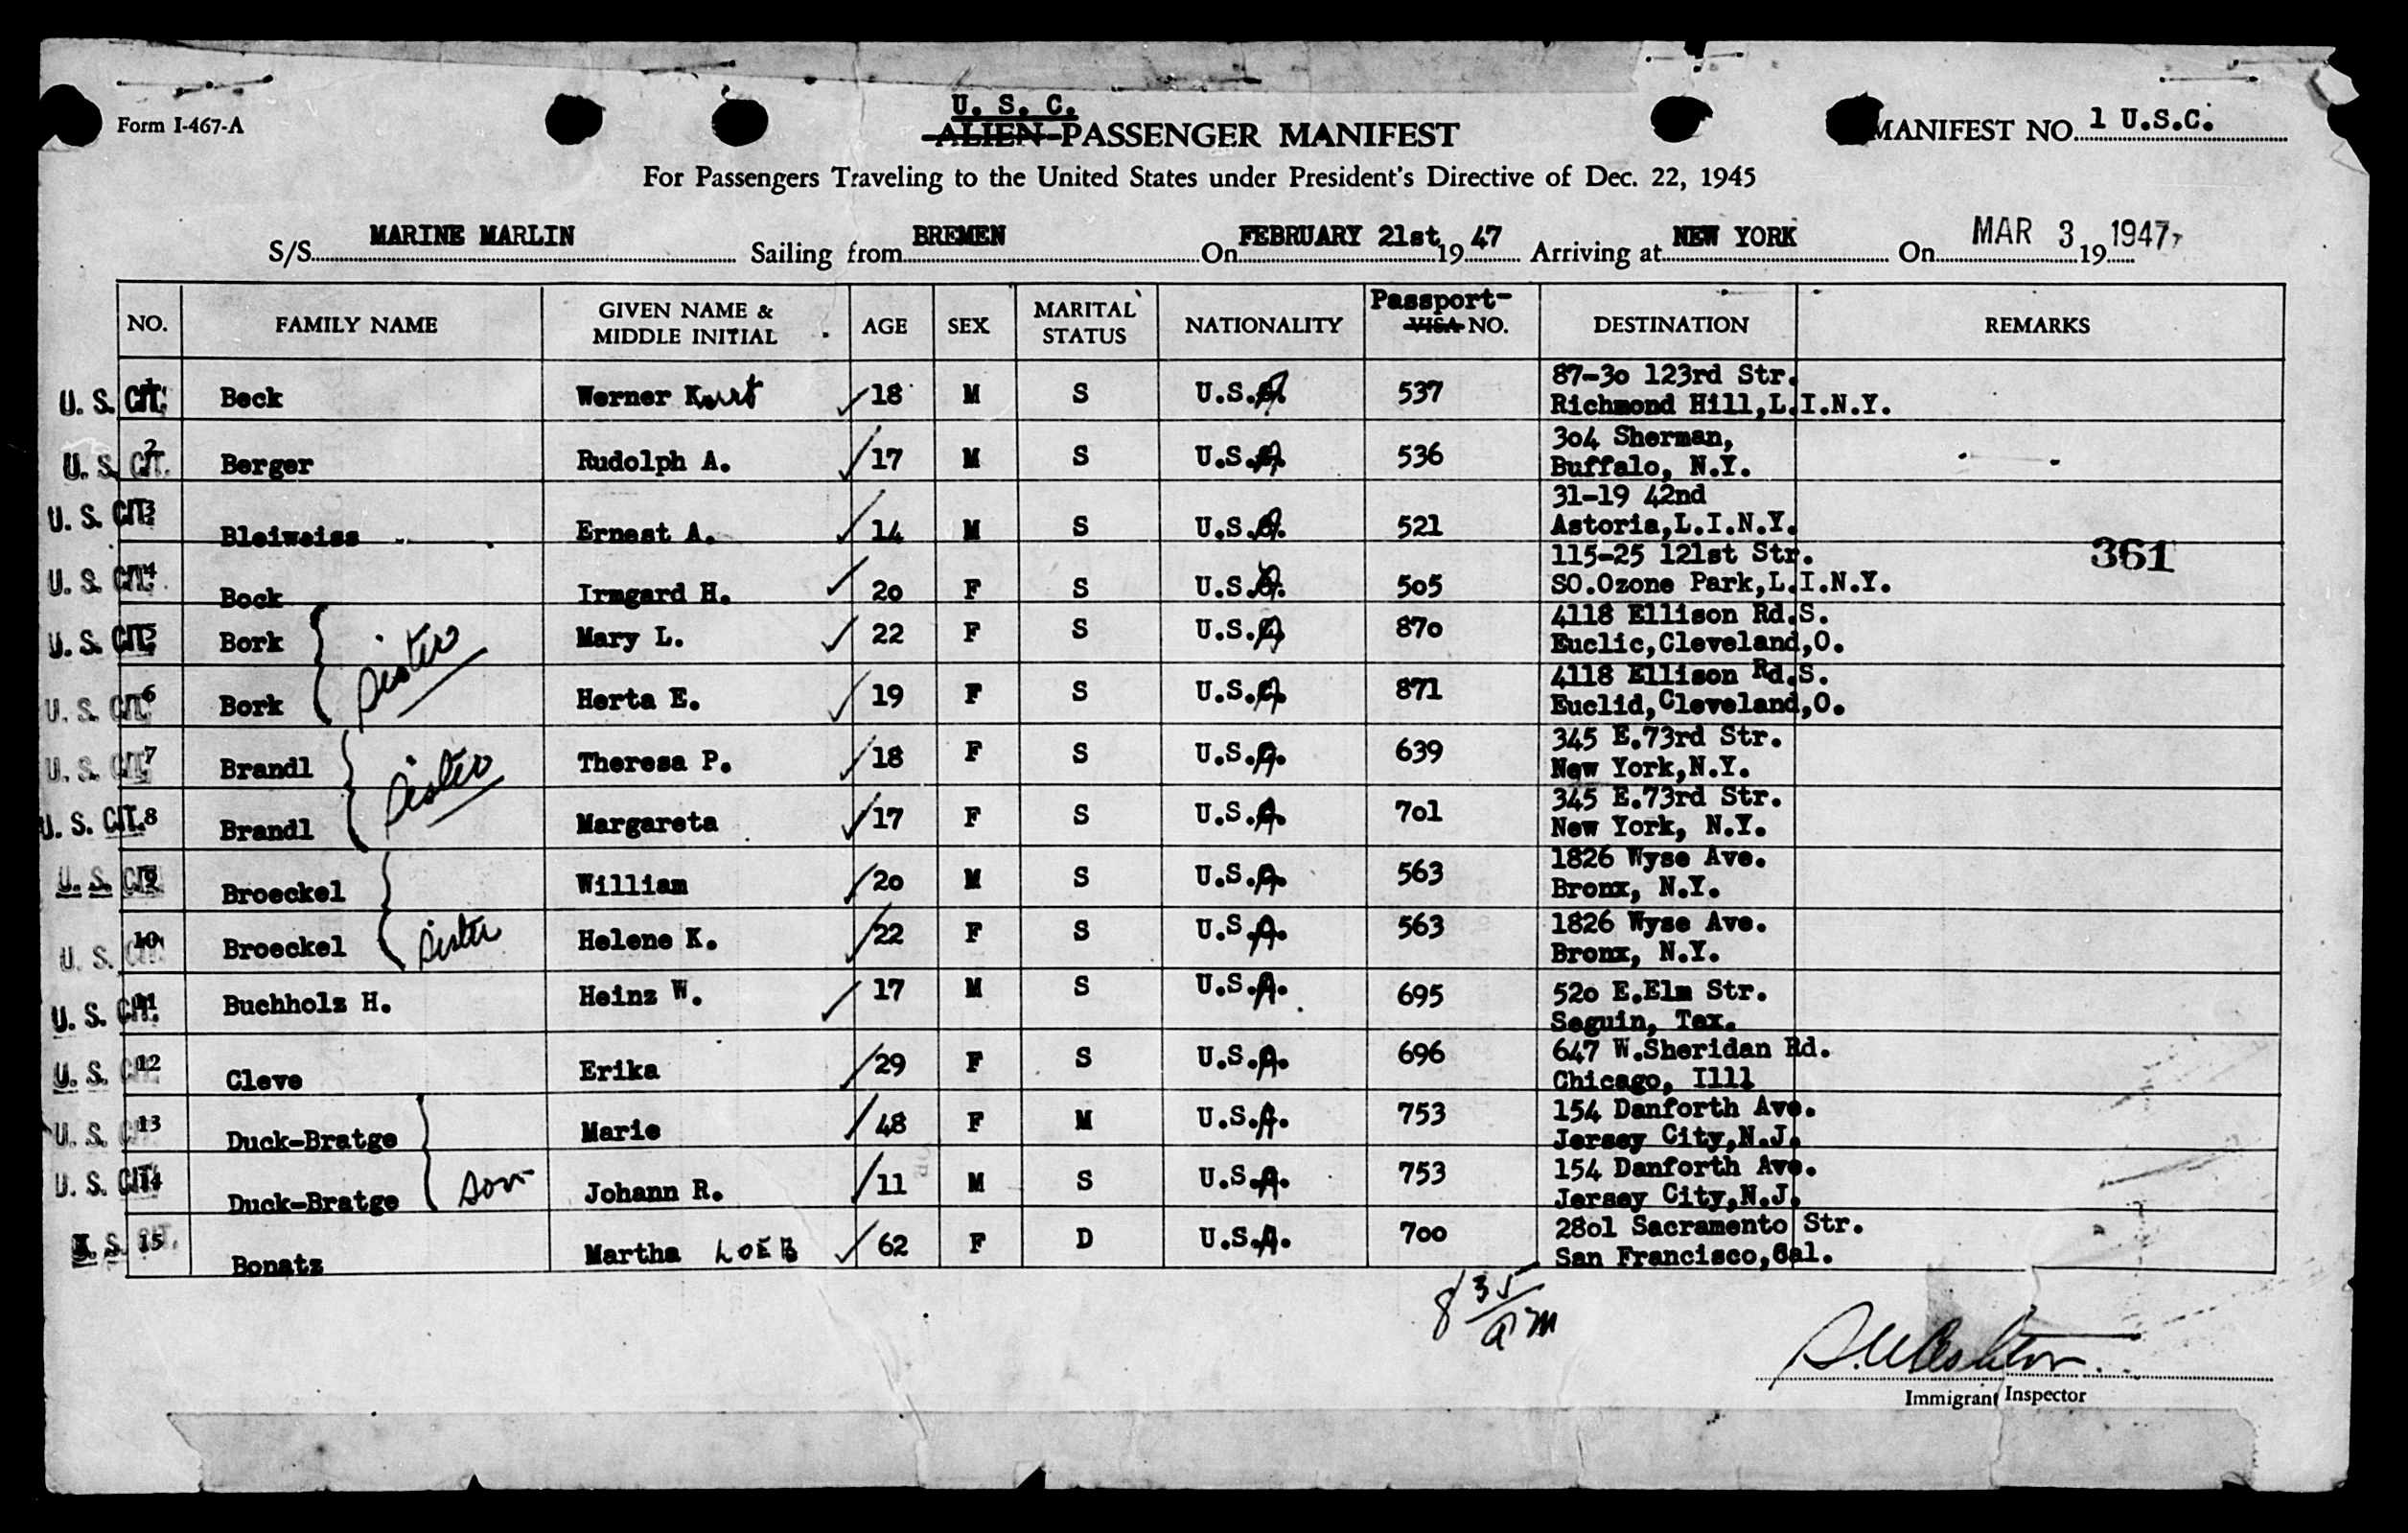 Form I-467-A
U. S. C.
ALIEN PASSENGER MANIFEST
MANIFEST NO. 1 U.S.C.
For Passengers Traveling to the United States under President's Directive of Dec. 22, 1945
S/S MARINE MARLIN Sailing from BREMEN On FEBRUARY 21st 19 47 Arriving at NEW YORK On MAR 3 19 1947
NO. FAMILY NAME GIVEN NAME & MIDDLE INITIAL AGE SEX MARITAL STATUS NATIONALITY Passport- VISA NO. DESTINATION REMARKS
U. S. CIT. Beck Werner Kurt 18 M S U.S.A. 537 87-30 123rd Str.
Richmond Hill,L.I.N.Y.
U. S. CIT. 2 Berger Rudolph A. 17 M S U.S.A. 536 304 Sherman,
Buffalo, N.Y.
U. S. CIT. 3 Bleiweiss Ernest A. 14 M S U.S.A. 521 31-19 42nd
Astoria,L.I.N.Y.
361
U. S. CIT. 4 Bock Irmgard H. 20 F S U.S.A. 505 115-25 121st Str.
SO.Ozone Park,L.I.N.Y.
U. S. CIT. 5 Bork Mary L. 22 F S U.S.A. 870 4118 Ellison Rd.S.
Euclic,Cleveland,O.
Sister
U. S. CIT. 6 Bork Herta E. 19 F S U.S.A. 871 4118 Ellison Rd.S.
Euclid,Cleveland,O.
U. S. CIT. 7 Brandl Theresa P. 18 F S U.S.A. 639 345 E.73rd Str.
New York,N.Y.
Sister
U. S. CIT. 8 Brandl Margareta 17 F S U.S.A. 701 345 E.73rd Str.
New York, N.Y.
U. S. CIT. 9 Broeckel William 20 M S U.S.A. 563 1826 Wyse Ave.
Bronx, N.Y.
U. S. CIT. 10 Broeckel Sister Helene K. 22 F S U.S.A. 563 1826 Wyse Ave.
Bronx, N.Y.
U. S. CIT. 11 Buchholz H. Heinz W. 17 M S U.S.A. 695 520 E.Elm Str.
Seguin, Tex.
U. S. CIT. 12 Cleve Erika 29 F S U.S.A. 696 647 W.Sheridan Rd.
Chicago, Illl
U. S. CIT. 13 Duck-Bratge Marie 48 F M U.S.A. 753 154 Danforth Ave.
Jersey City,N.J.
U. S. CIT. 14 Duck-Bratge Son Johann R. 11 M S U.S.A. 753 154 Danforth Ave.
Jersey City,N.J.
U. S. CIT. 15 Bonatz Martha LOEB 62 F D U.S.A. 700 2801 Sacramento Str.
San Francisco,Cal.
8 35/am
Immigrant Inspector